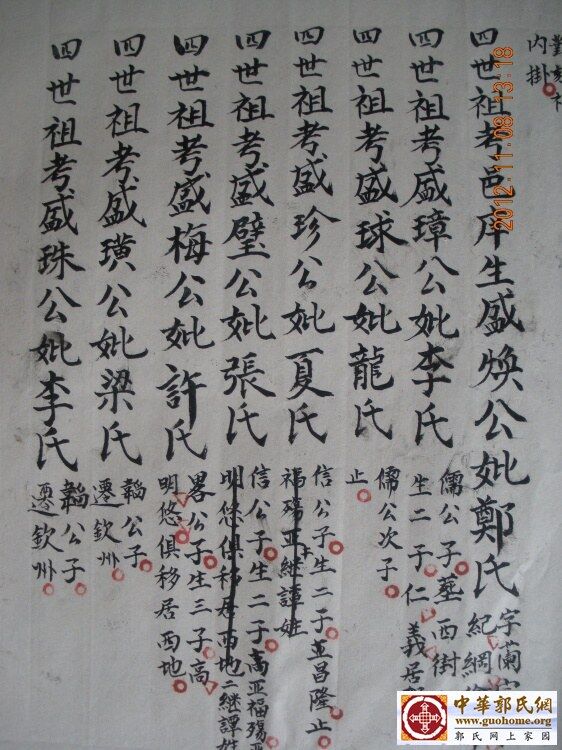 內掛
四世祖考邑庠生盛煥公妣鄭氏
字蘭
紀綱
四世祖考盛璋公妣李氏
儒公子葬西街
生二子仁義居
四世祖考盛球公妣龍氏
儒公次子
止
四世祖考盛珍公妣夏氏
信公子生二子並昌隆止
福殤亚継譚姓
四世祖考盛璧公妣張氏
信公子生二子高亚福殤
明悠俱移居西地二継譚姓
四世祖考盛梅公妣許氏
畧公子生三子高
明悠俱移居西地
四世祖考盛璜公妣梁氏
韜公子
遷欽州
四世祖考盛珠公妣李氏
韜公子
遷欽州
2012.11.08 13:18
中華郭氏網
www.guohome.org
郭氏网上家园